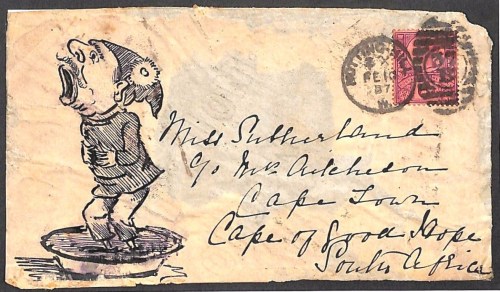 NOTTING-HILL
FE 10
87
W.
Miss Sutherland
c/o Mrs Aitcheson
Cape Town
Cape of Good Hope
South Africa